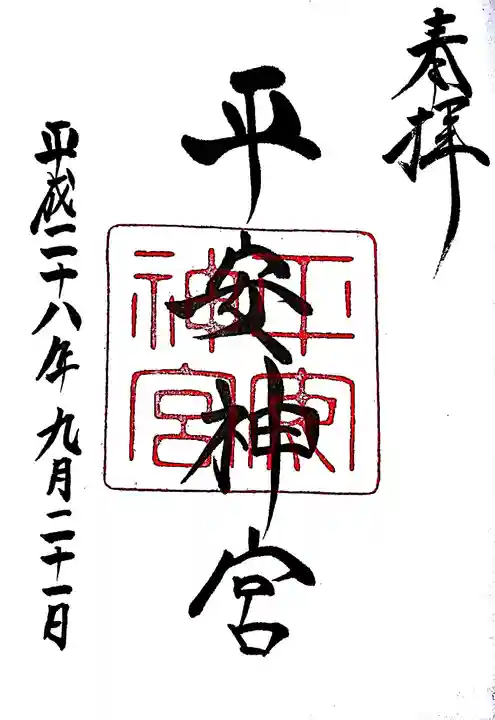 奉拝
平安神宮
平安神宮
平成二十八年九月二十一日